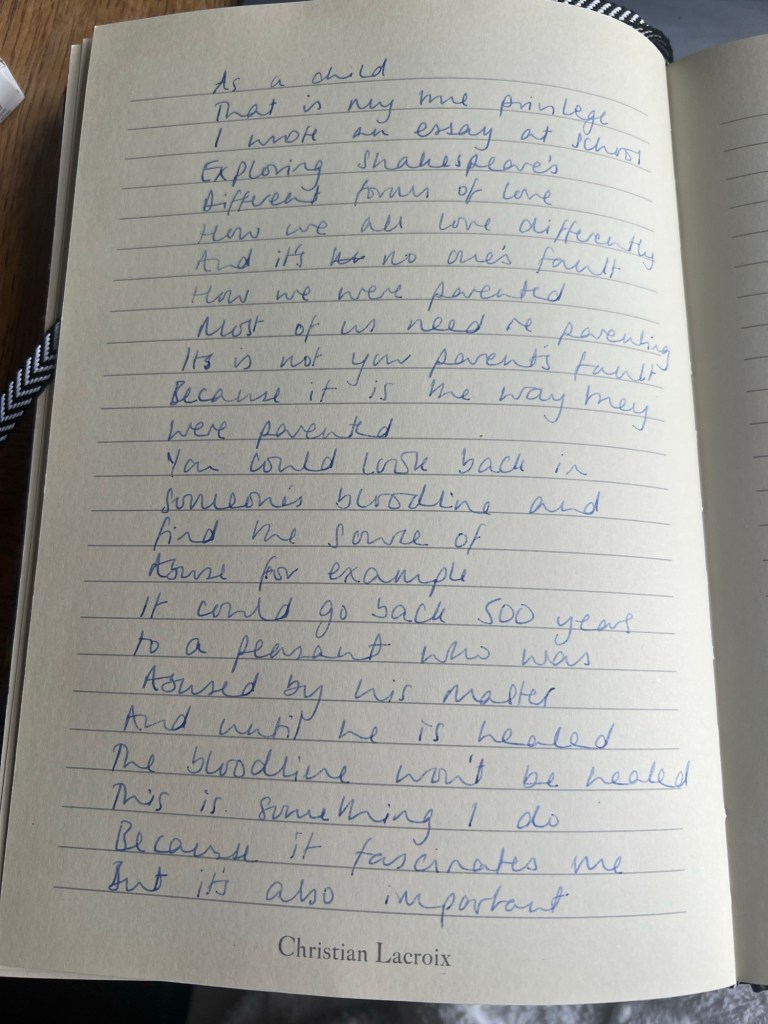 As a child
That is my true privilege
I wrote an essay at school
Exploring Shakespeare's
Different forms of love
How we all love differently
And it's no one's fault
How we were parented
Most of us need re parenting
Its is not your parent's fault
Because it is the way they
were parented
You could look back in
someone's bloodline and
find the source of
Abuse for example
It could go back 500 years
to a peasant who was
Abused by his master
And until he is healed
The bloodline won't be healed
This is something I do
Because it fascinates me
But it's also important
Christian Lacroix